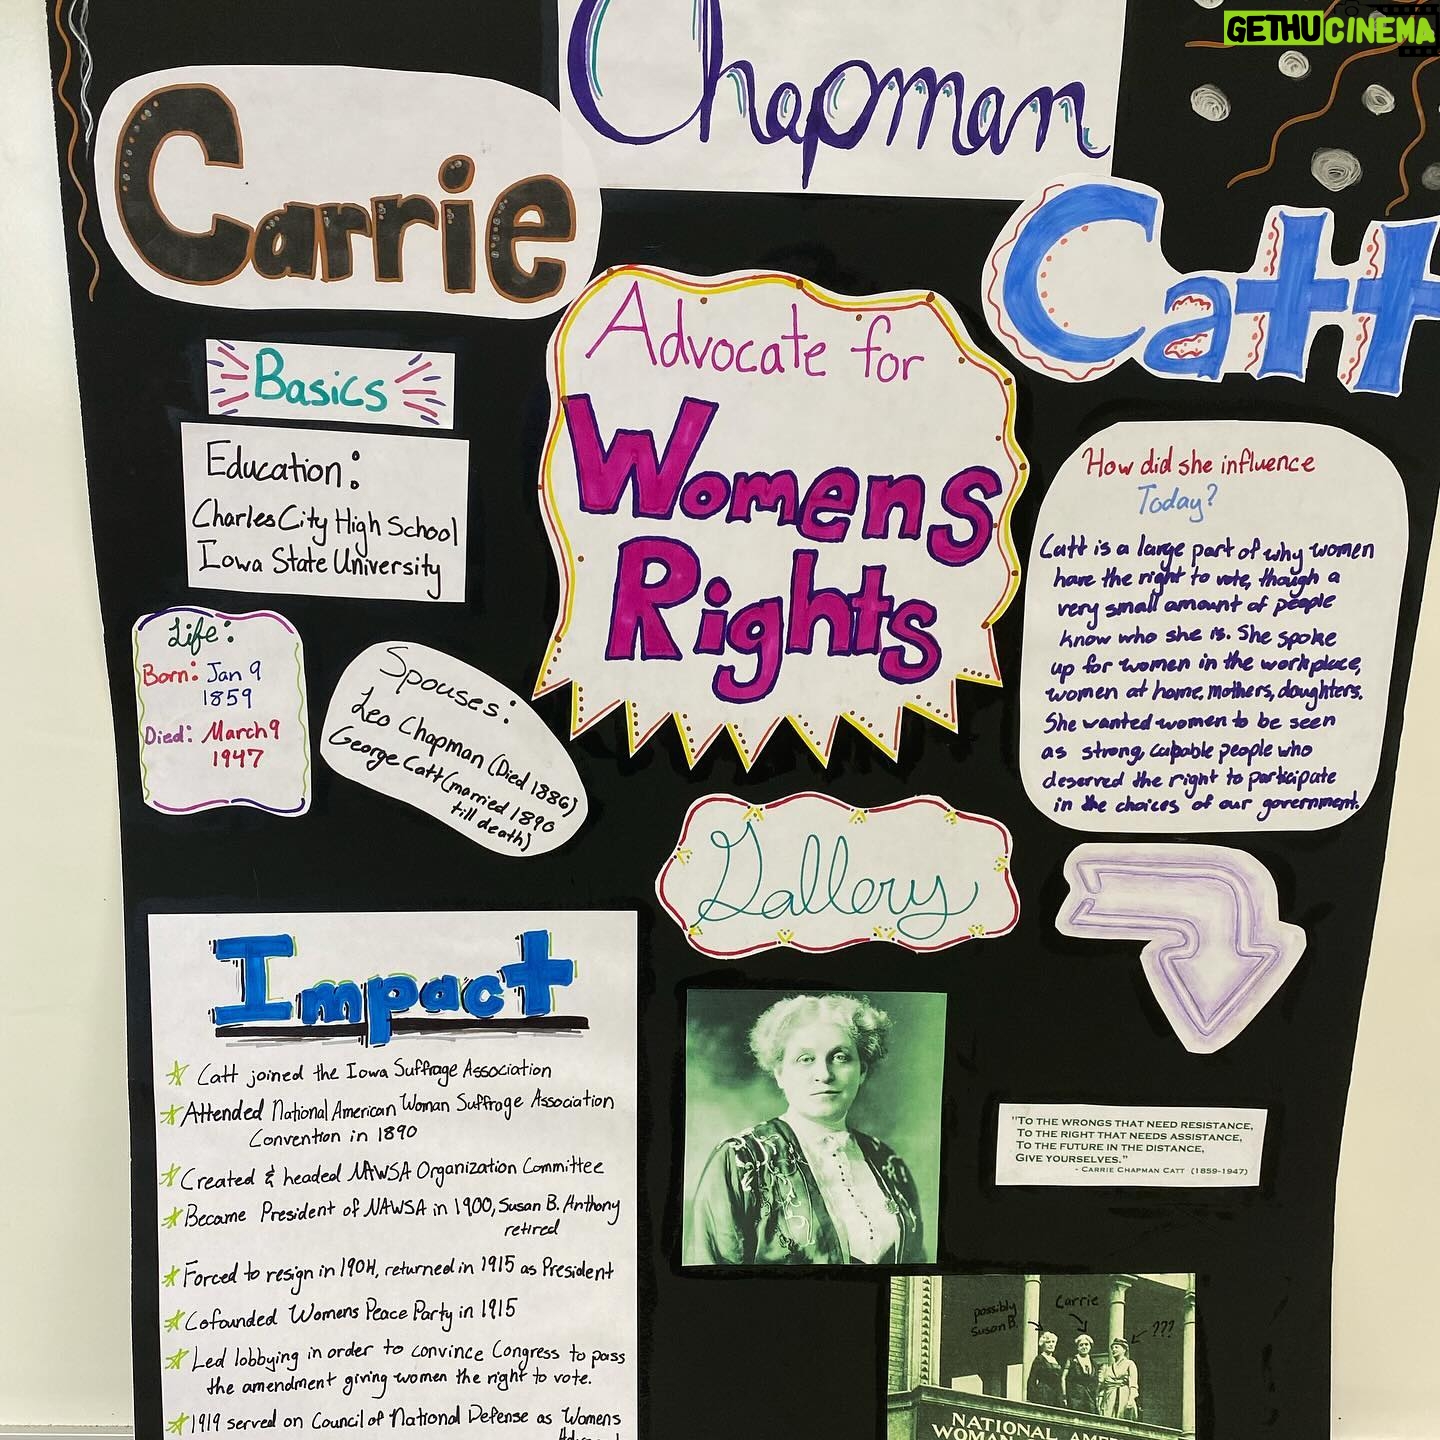 GETHUCINEMA
Carrie
Chapman
Catt
Advocate for
Womens
Rights
Basics
Education:
Charles City High School
Iowa State University
Life:
Born: Jan 9
1859
Died: March 9
1947
Spouses:
Leo Chapman (Died 1886)
George Catt (married 1890
till death)
How did she influence
Today?
Catt is a large part of why women
have the right to vote, though a
very small amount of people
know who she is. She spoke
up for women in the workplace,
women at home, mothers, daughters.
She wanted women to be seen
as strong, capable people who
deserved the right to participate
in the choices of our government.
Gallery
Impact
Catt joined the Iowa Suffrage Association
Attended National American Woman Suffrage Association
Convention in 1890
Created & headed NAWSA Organization Committee
Became President of NAWSA in 1900, Susan B. Anthony
retired
Forced to resign in 1904, returned in 1915 as President
Cofounded Womens Peace Party in 1915
Led lobbying in order to convince Congress to pass
the amendment giving women the right to vote.
1919 served on Council of National Defense as Womens
"TO THE WRONGS THAT NEED RESISTANCE,
TO THE RIGHT THAT NEEDS ASSISTANCE,
TO THE FUTURE IN THE DISTANCE,
GIVE YOURSELVES."
- CARRIE CHAPMAN CATT (1859-1947)
possibly
Susan B.
Carrie
???
NATIONAL AME
WOMAN